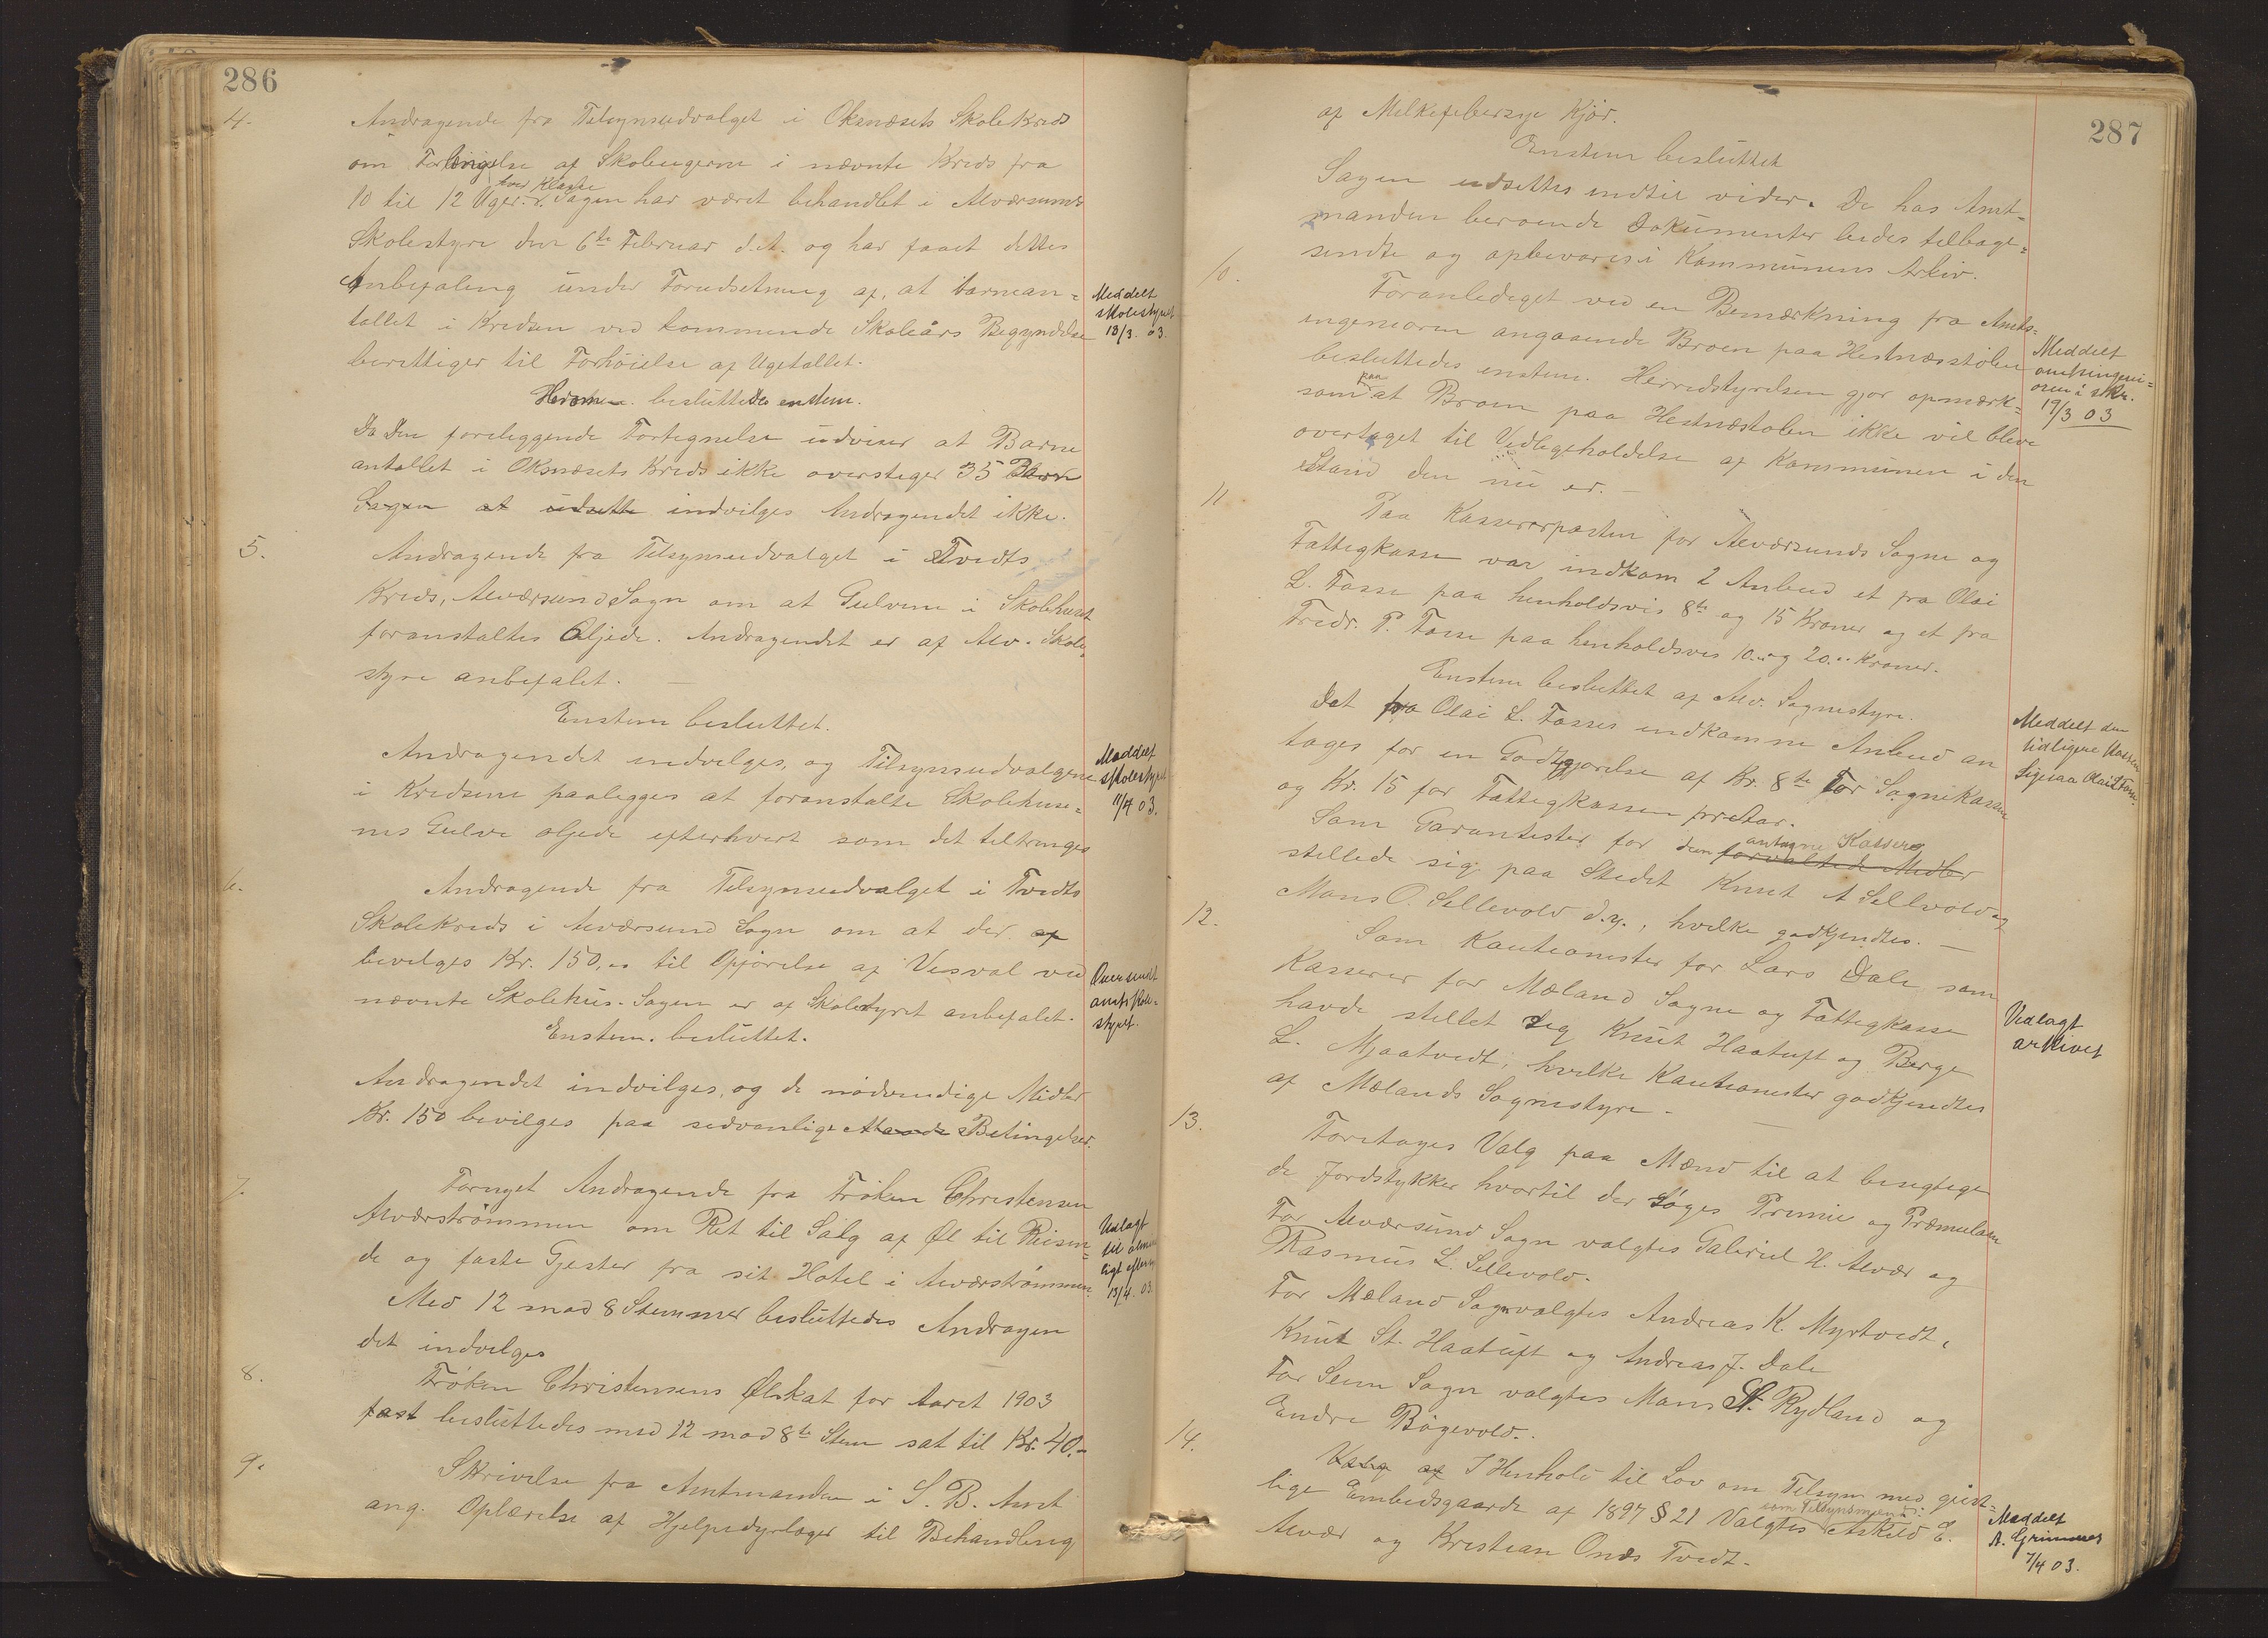 286
4. Andragende fra Tilsynsudvalget i Oksnæsets Skolekreds
om Forlængelse af Skoleugerne i nævnte Kreds fra
10 til 12 Uger. hver Klasse Sagen har været behandlet i Alværsunds
Skolestyre den 6te Februar d.A. og har faaet dettes
Anbefaling under Forudsetning af, at barnean=
tallet i Kredsen ved kommende Skoleårs Begyndelse
berettiger til Forhöielse af Ugetallet.
Meddelt
skolestyret
13/3. 03.
Herom besluttedes enstem.
Da den foreliggende Fortegnelse udviser at Barne
antallet i Oksnæsets Kreds ikke overstiger 35 Barn
Sagen at udsette indvilges Andragendet ikke.
5. Andragende fra Tilsynsudvalget i Tvedts
Kreds, Alværsund Sogn om at Gulvene i Skolehuset
foranstaltes Oljede. Andragendet er af Alv. Skole=
styre anbefalet. —
Enstem besluttet.
Andragendet indvelges, og Tilsynsudvalgene
i Kredsene paalegges at foranstalte Skolehuse=
nes Gulve oljede efterhvert som det tiltrenges
Meddelt
skolestyret
11/4 03.
6. Andragende fra Tilsynsudvalget i Tvedts
Skolekreds i Alværsund Sogn om at der af
bevilges Kr. 150,00 til Opförelse af Vedval ved
nævnte Skolehus. Sagen er af Skolestyret anbefalet.
Oversendt
amtsskole=
styret.
Enstem. besluttet.
Andragendet indvilges, og de nödvendige Midler
Kr. 150 bevilges paa sedvanlige Maade Betingelser.
7. Fornyet Andragende fra Fröken Christensen
Alværströmmen om Ret til Salg af Øl til Reisen=
de og faste Gjester fra sit Hotel i Alværströmmen.
Udlagt
til almin
ligt eftersyn
13/4. 03.
Med 12 mod 8 Stemmer besluttedes Andragen
det indvelges
8. Fröken Christensens Ølskat for Aaret 1903
fast besluttedes med 12 mod 8te Stem sat til Kr. 40.-
9. Skrivelse fra Amtmanden i S. B. Amt
ang. Oplærelse af Hjelpedyrlæger til Behandling
287
af Melkefebersyge Kjör.
Enstem besluttet
Sagen udsettes indtil videre. De hos Amt=
manden beroende Dokumenter bedes tilbage=
sendte og opbevares i Kommunens Arkiv.
10. Foranlediget ved en Bemærkning fra Amts=
ingeniören angaaende Broen paa Hestnæsstölen
besluttedes enstem. Herredstyrelsen gjör opmærk=
som paa at Broen paa Hestnæstölen ikke vil blive
overtaget til Vedligeholdelse af Kommunen i den
Stand den nu er. —
Meddelt
amtsingeni=
ören i skr.
19/3 03
11 Paa Kassererposten for Alværsunds Sogne og
Fattigkasse var indkom 2 Anbud et fra Olai
L. Fosse paa henholdsvis 8te og 15 Kroner og et fra
Fredr. P. Fosse paa henholdsvis 10.00 og 20.00 Kroner.
Enstem besluttet af Alv. Sognestyre.
Det fra Olai L. Fosses indkomne Anbud an
tages for en Godtgjörelse af Kr. 8te for Sognekassen
og Kr. 15 for Fattigkassen pr Aar.
Meddelt den
tidligere Kasser
ligesaa Olai L Fosse.
Som Garantister for den antagne Kasserer forvaltede Midler
stillede sig paa Stedet Knut A Sellevold og
Mons O. Sellevold d.y., hvilke godkjendtes. —
12. Som Kautionister for Lars Dale som
Kasserer for Mæland Sogne og Fattigkasse
havde stillet sig Knut Haatuft og Berge
L. Mjaatvedt, hvilke Kautionister godkjendtes
af Mælands Sognestyre. —
Vedlagt
arkivet
13. Foretoges Valg paa Mænd til at besigtige
de Jordstykker hvortil der söges Premie og Præmielaan
For Alværsund Sogn valgtes Gabriel H. Alvær og
Rasmus L. Sellevold.
For Mæland Sogn valgtes Andreas K. Myrtvedt,
Knut St. Haatuft og Andreas J. Dale
For Seim Sogn valgtes Mons St. Rydland og
Endre Bögevold.
14. Valg af I Henhold til Lov om Tilsyn med geist=
lige Embedsgaarde af 1897 § 21 Valgtes som Tilsynsmænd: Askild E.
Alvær og Kristian Onæs Tvedt.
Meddelt
A. Grimnes
7/4 03.